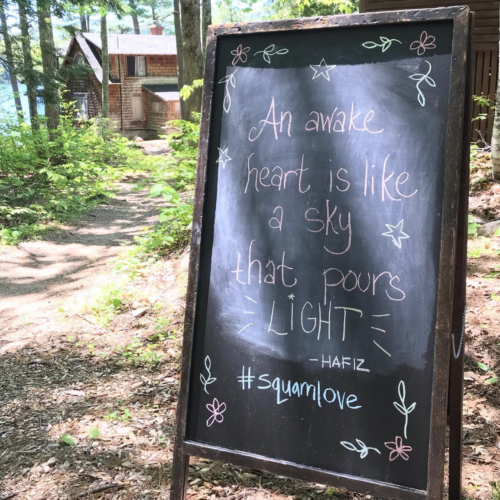 An awake
heart is like
a sky
that pours
LiGHT
-HAFIZ
#squamlove